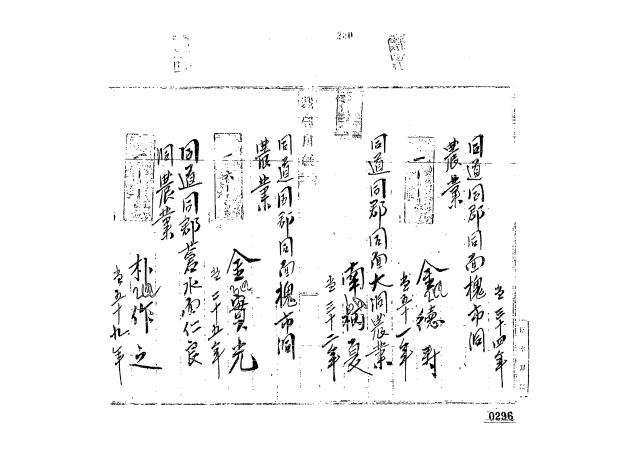 280
當三十四年
同道同郡同面槐市洞
農業
金德對
當五十一年
同道同郡同面大洞農業
南炳夏
當三十二年
同道同郡同面槐市洞
農業
金實光
當二十五年
同道同郡蒼水面仁良
洞農業
朴作之
當五十九年
0296